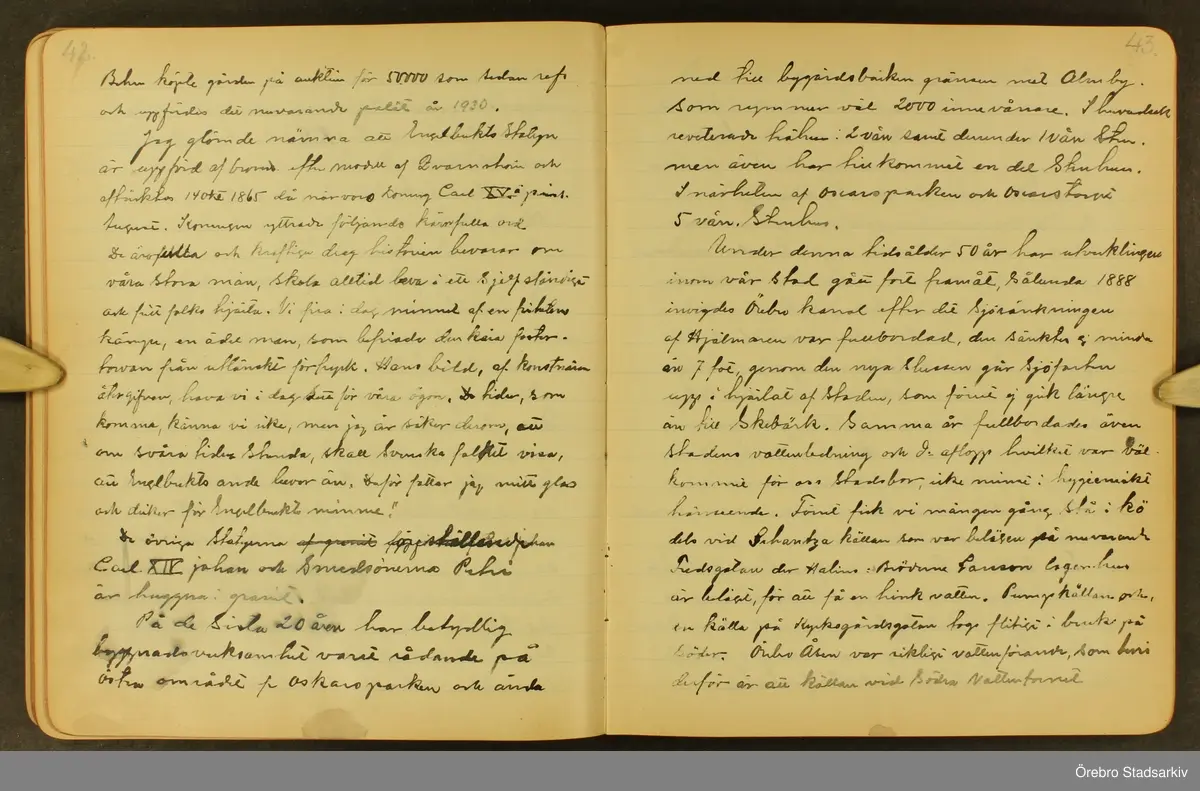 42.
Behm köpte gården på auktion för 50000 som sedan refs
och uppfördes det nuvarande palät år 1930.
Jag glömde nämna att Engelbrekts Statyn
är uppförd af brons efter modell af Qvarnström och
aftäcktes 14 Okt 1865 då närvoro Konung Carl XV. å prins
August. Konungen yttrade följande kärnfulla ord
De ärofulla och kraftiga drag historien bevarar om
våra stora män, skola alltid leva i ett Sjelfständigt
och fritt folks hjärta. Vi fira i dag minnet af en frihetens
kämpe, en ädel man, som befriade den kära foster-
torvan från utländskt förtryck. Hans bild, af konstnären
återgifven, hava vi i dag sett för våra ögon. De tider, som
komma, känna vi icke, men jag är säker derom, att
om svåra tider stunda, skall Svenska folket visa,
att Engelbrekts ande lever än. Derför fattar jag mitt glas
och dricker för Engelbrekts minne."
De övriga Statyerna af granit föreställande johan
Carl XIV johan och Smedsönerna Petri
är huggna i granit.
På de Sista 20 åren har betydlig
byggnadsverksamhet varit rådande på
östra området fr Oskarsparken och ända
43.
ned till bygärdsbäcken gränsen mot Almby.
som rymmer väl 2000 innevånare. I huvudsak
reveterade trähus i 2 vån samt derunder 1 vån Sten.
men även har tillkommit en del Stenhus.
I närheten af Oscarsparken och Oscarstorget
5 vån. Stenhus.
Under denna tidsålder 50 år har utvecklingen
inom vår Stad gått fort framåt, Sålunda 1888
invigdes Örebro kanal efter det Sjösänkningen
af Hjälmaren var fullbordad, den sänktes ej mindre
än 7 fot, genom den nya Slussen går Sjöfarten
upp i hjärtat af Staden, som förut ej gick längre
än till Skebäck. Samma år fullbordades även
Stadens vattenledning och dr aflopp hvilket var Väl-
kommet för oss Stadsbor, icke minst i hygieniskt
hänseende. Förut fick vi mången gång stå i kö
dels vid Schantza källan som var belägen på nuvarande
Fredsgatan der Halins i Bröderne Larson lagerhus
är beläget, för att få en hink vatten. Pumpkällan och
en källa på Kyrkogårdsgatan togs flitigt i bruk på
söder. Örebro Åsen var rikligt vattenförande, som bevis
derför är att källan vid Södra Vattentornet
Örebro Stadsarkiv